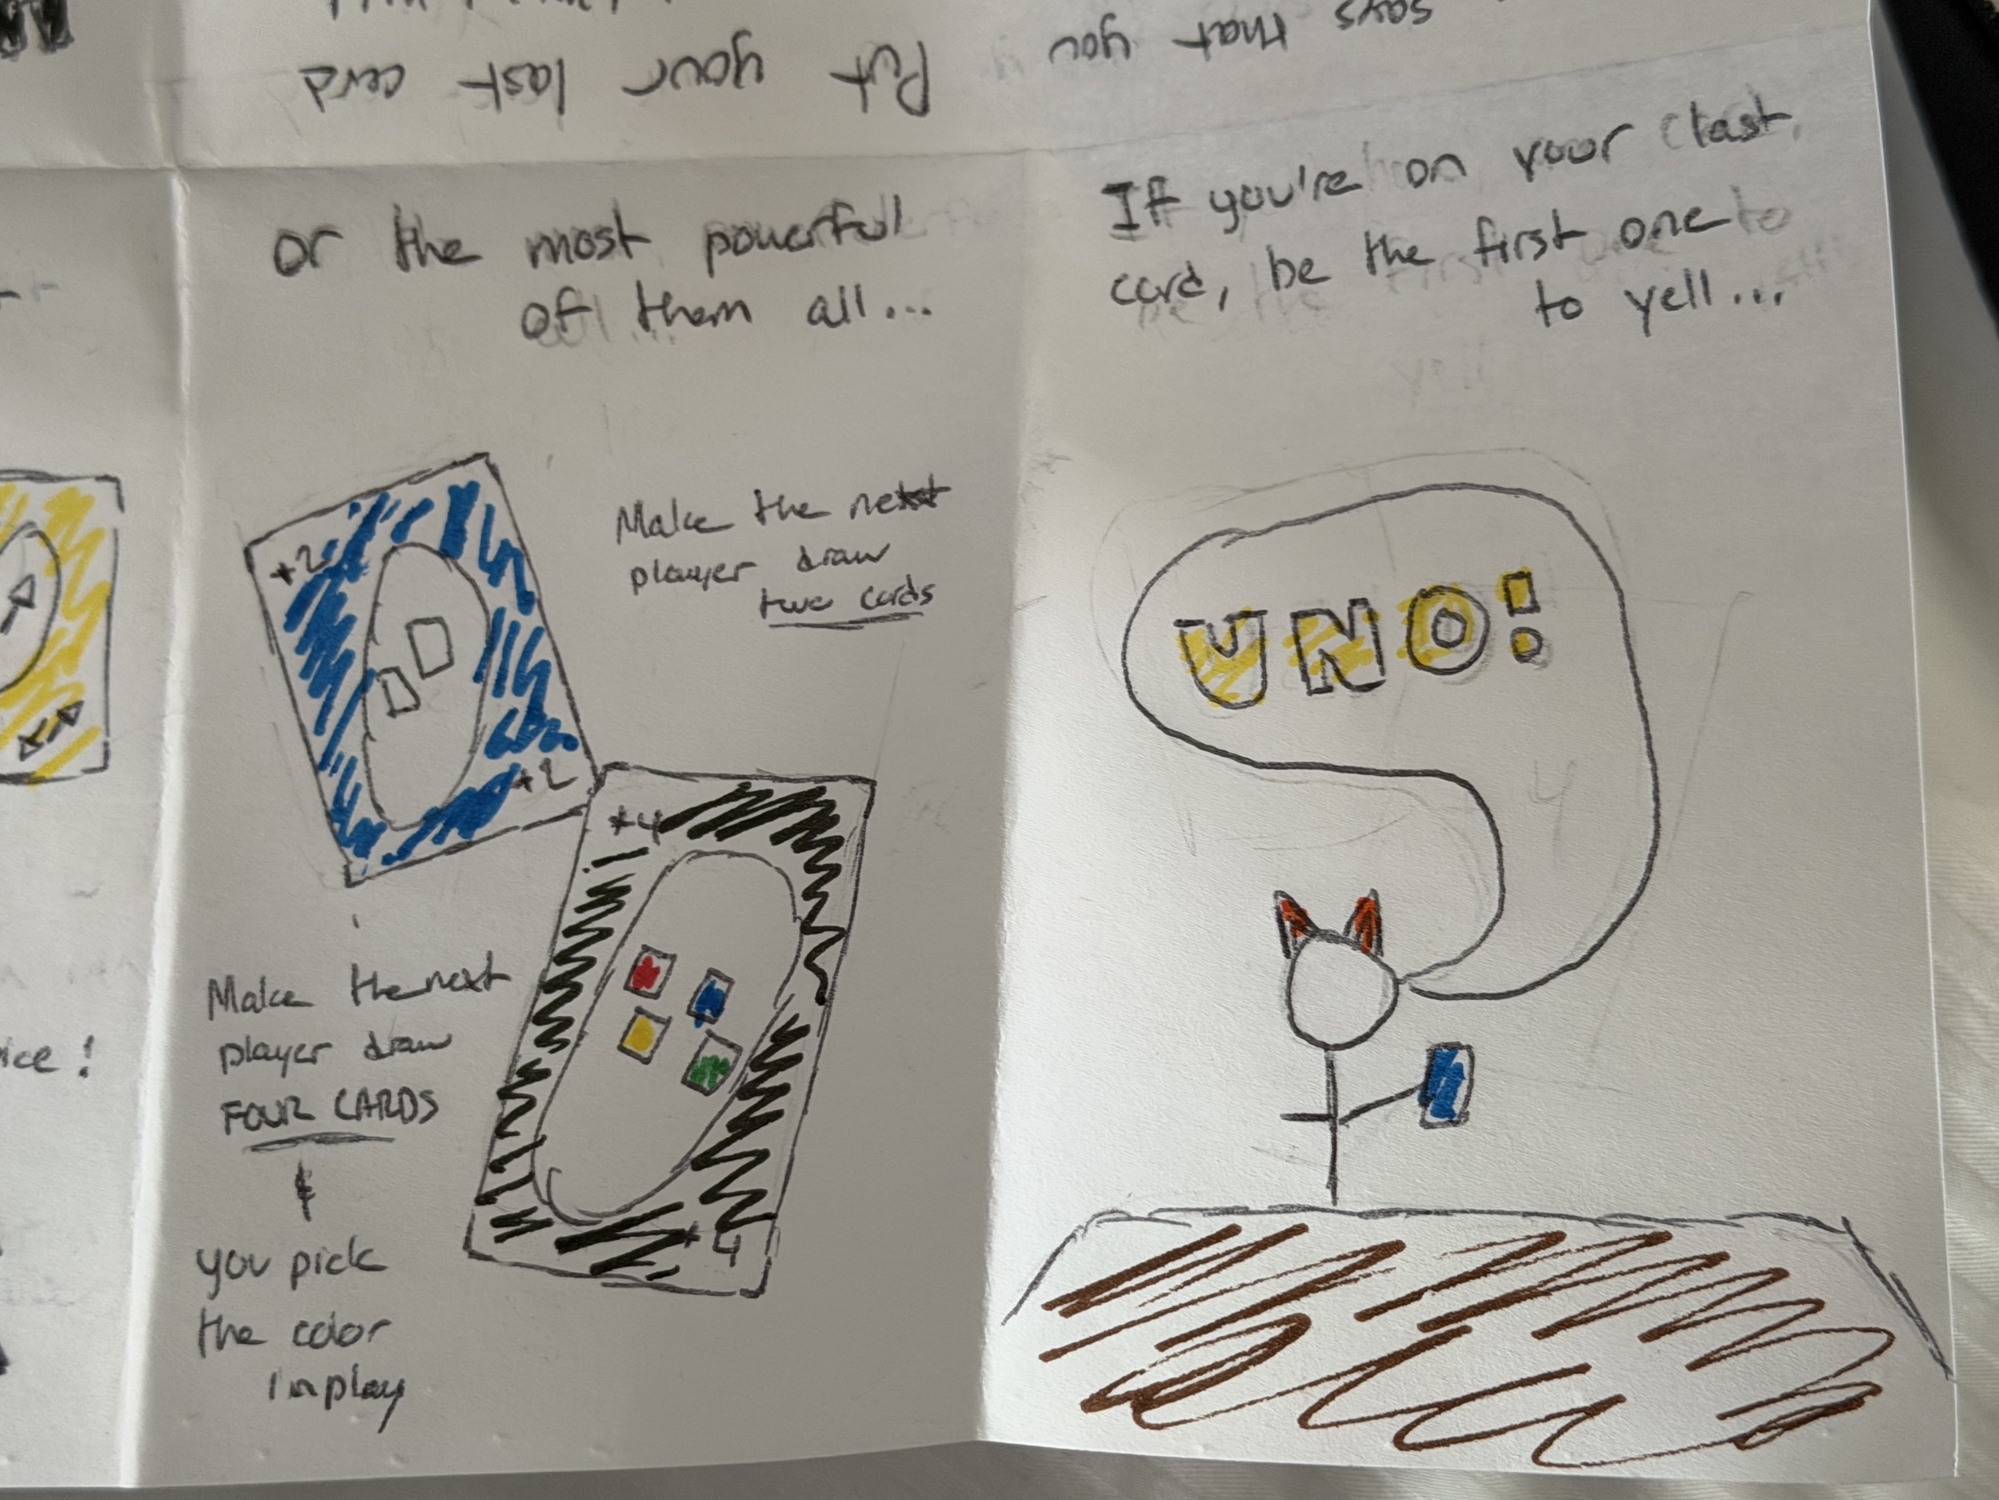 says that you
Put your last card
or the most powerful
of them all...
Make the next
player draw
two cards
+2
+2
+4
+4
Make the next
player draw
FOUR CARDS
&
you pick
the color
in play
If you're on your last
card, be the first one
to yell...
UNO!